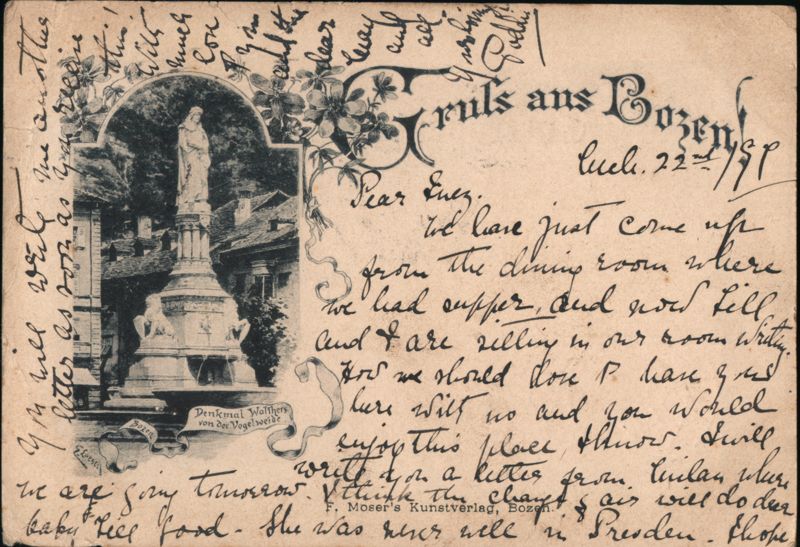 Gruss aus Bozen!
22nd/99
Dear Inez.
We have just come up
from the dining room where
we had supper, and now Lill
and I are sitting in our room writing.
How we should love to have you
here with us and you would
enjoy this place, I know. I will
write you a letter from Milan where
we are going tomorrow. I think the change & air will do dear
baby Lill good. She was never well in Dresden. I hope
you will write me another
letter as soon as you receive
this!
With
much
love
to you
and the
dear
and
all
Denkmal Walthers
von der Vogelweide
Bozen
F. Moser's Kunstverlag, Bozen.